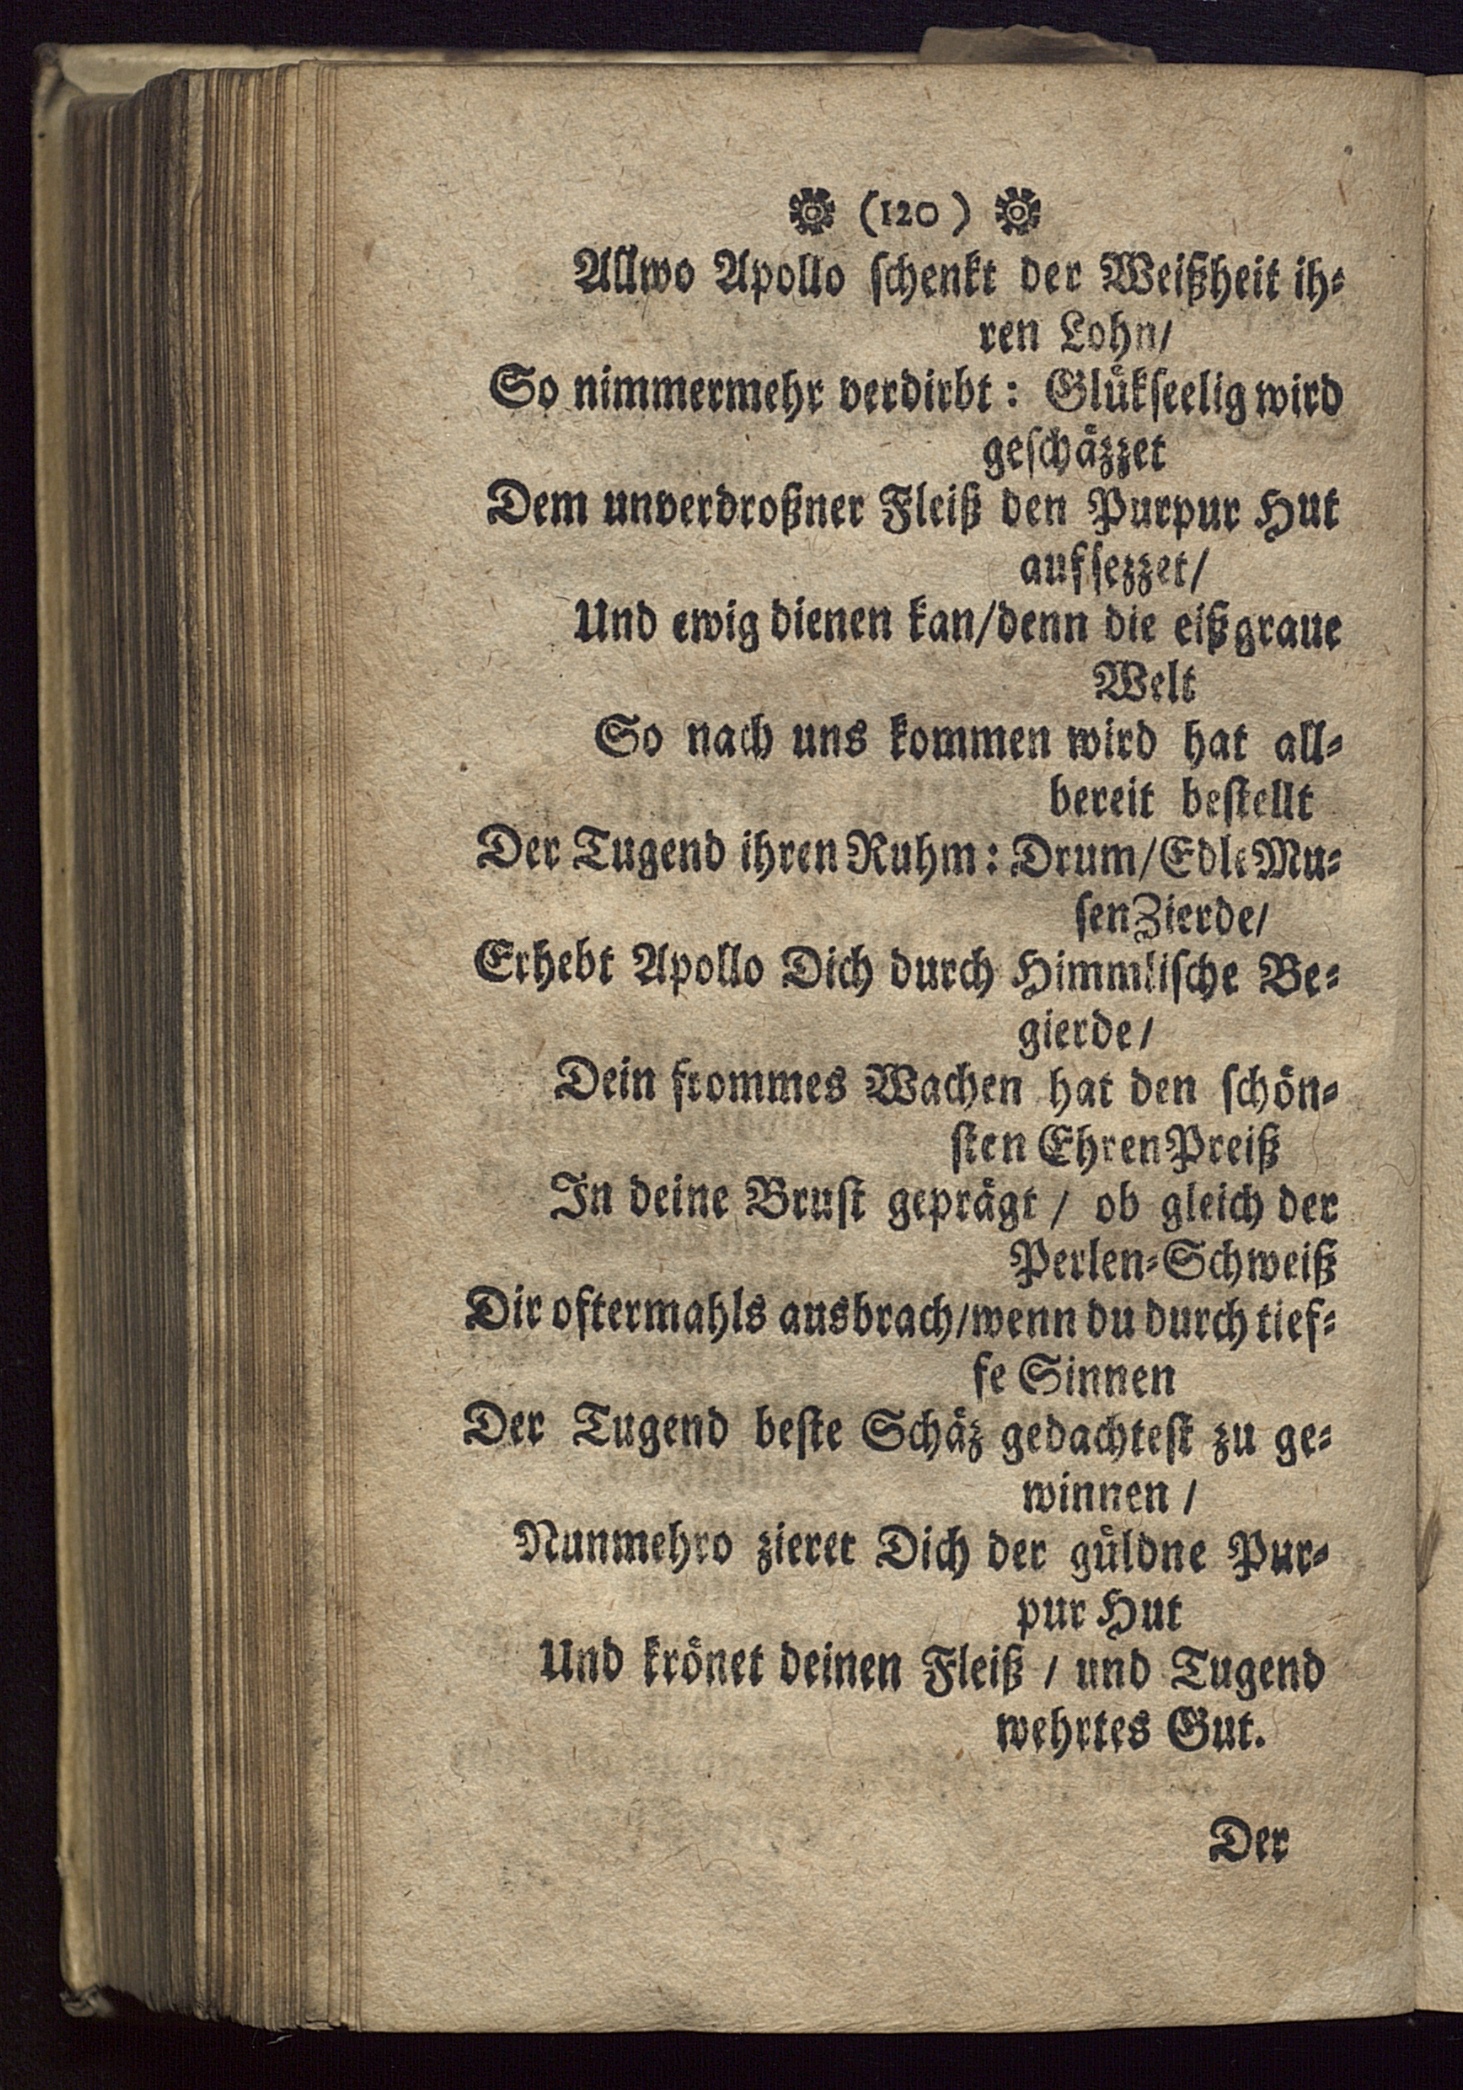 (120)
Allwo Apollo ſchenkt der Weißheit ih⸗
ren Lohn/
So nimmermehr verdirbt: Glükſeelig wird
geſchäzzet
Dem unverdroßner Fleiß den Purpur Hut
aufſezzet/
Und ewig dienen kan/denn die eißgraue
Welt
So nach uns kommen wird hat all⸗
bereit beſtellt
Der Tugend ihren Ruhm: Drum/Edle Mu⸗
ſenZierde/
Erhebt Apollo Dich durch Himmliſche Be⸗
gierde/
Dein frommes Wachen hat den ſchön⸗
ſten EhrenPreiß
In deine Bruſt geprägt / ob gleich der
Perlen⸗Schweiß
Dir oftermahls ausbrach/wenn du durch tief⸗
fe Sinnen
Der Tugend beſte Schäz gedachteſt zu ge⸗
winnen /
Nunmehro zieret Dich der güldne Pur⸗
pur Hut
Und krönet deinen Fleiß / und Tugend
wehrtes Gut.
Der